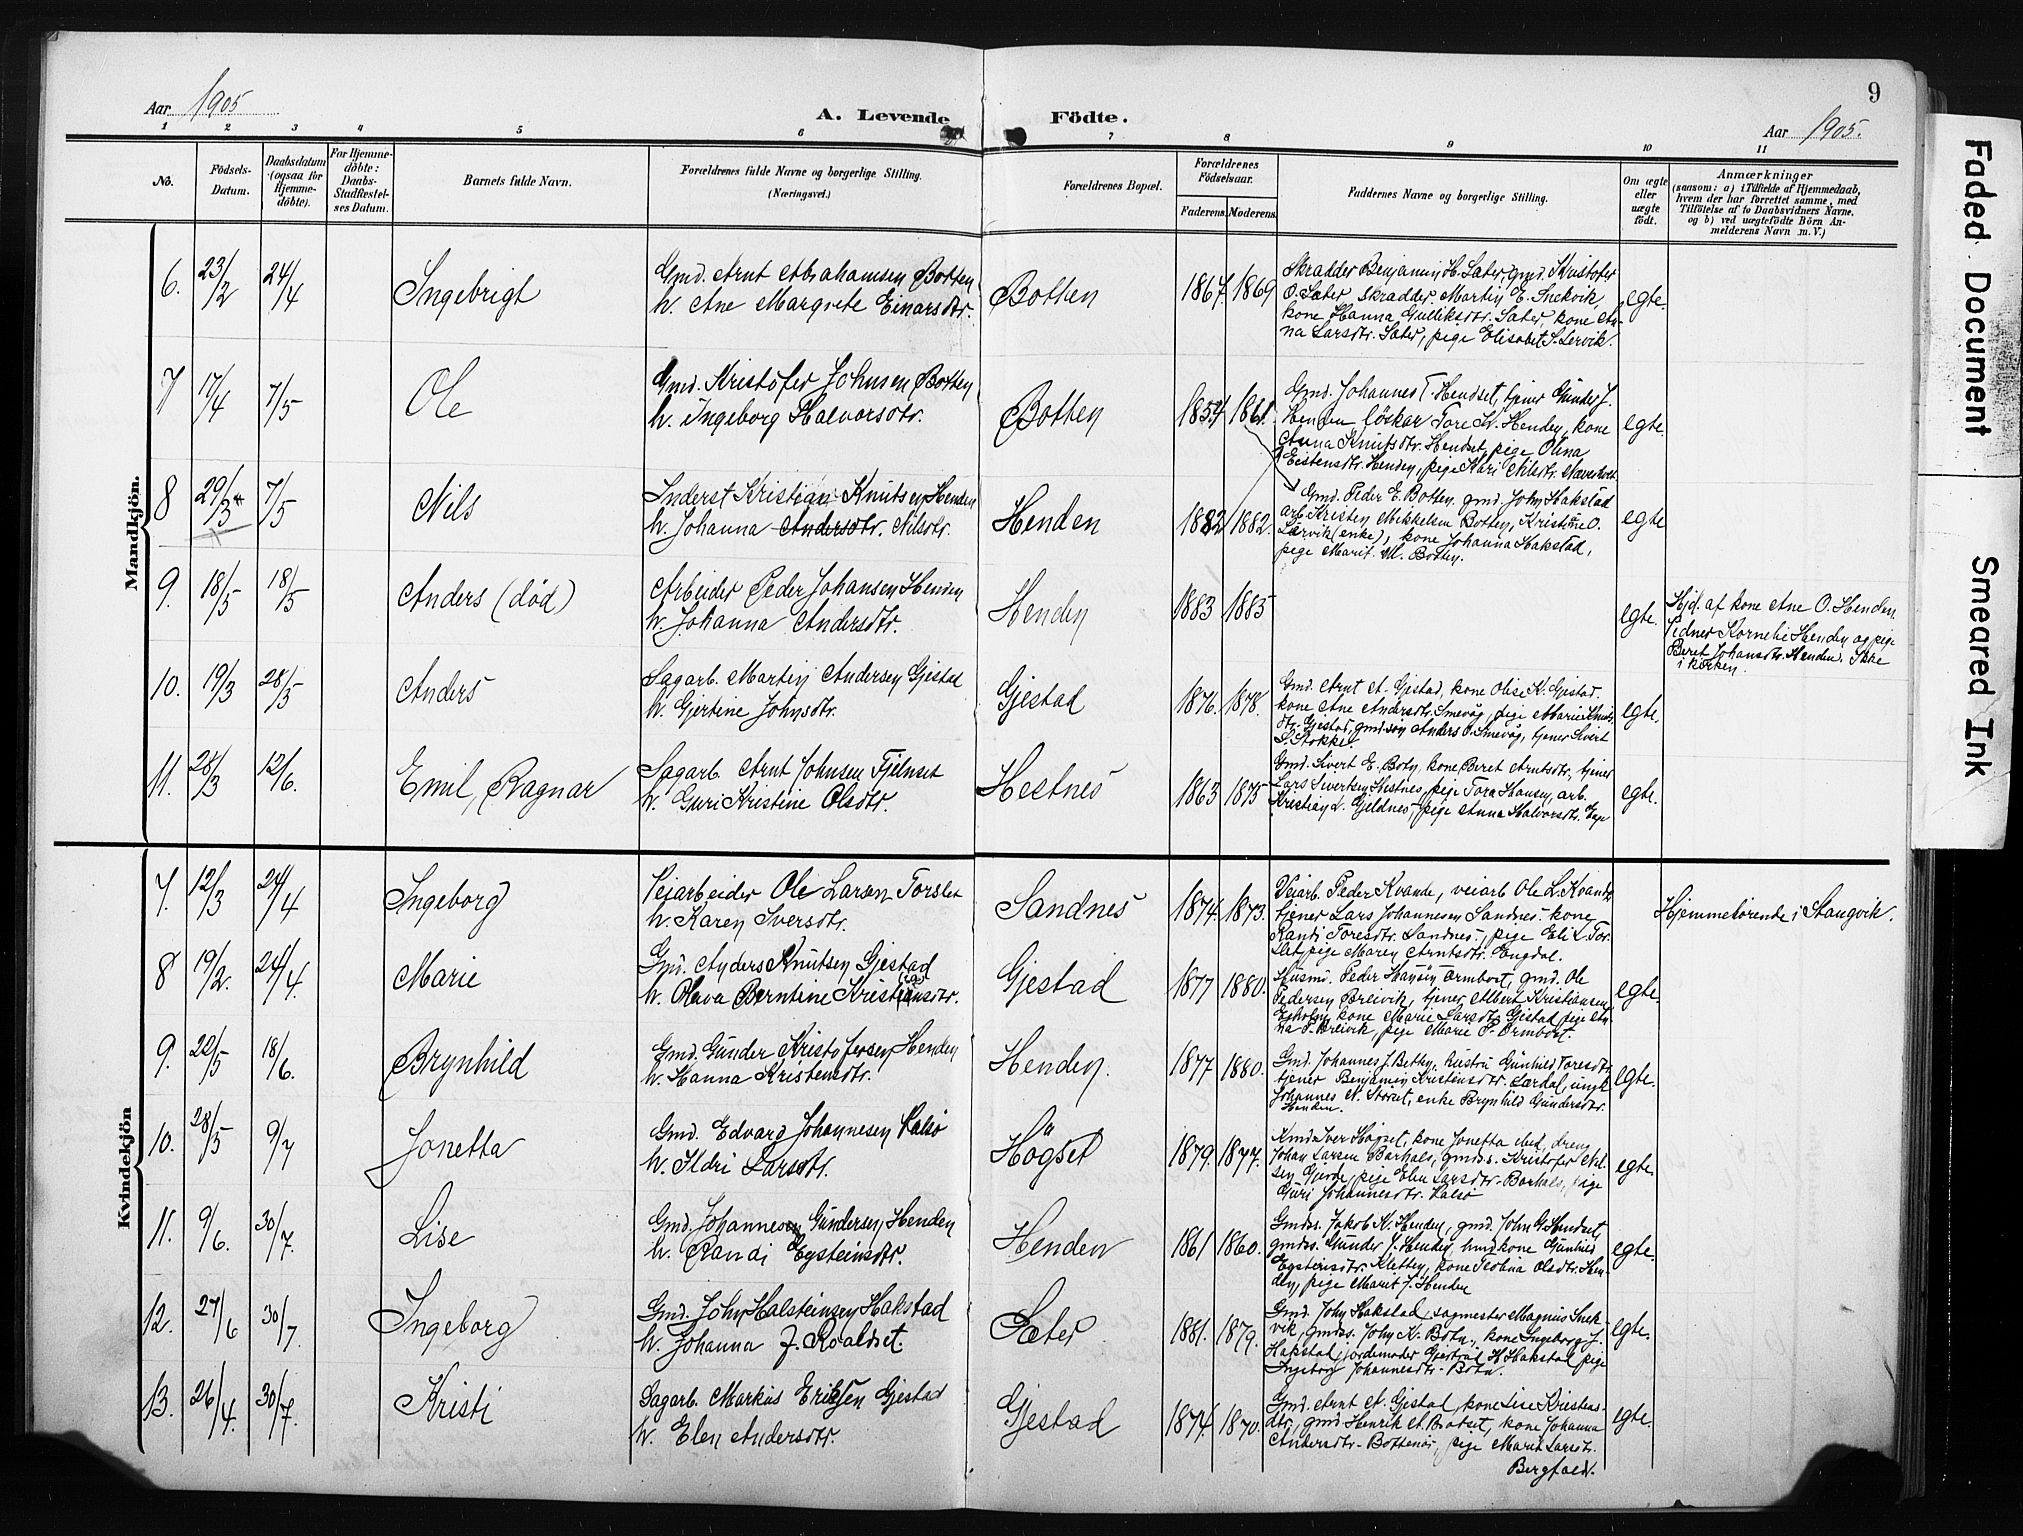 9
Aar 1905
A. Levende Födte.
Aar 1905.
1 2 3 4 5 6 7 8 9 10 11
No.
Födsels-Datum.
Daabsdatum (ogsaa for Hjemmedöbte).
For Hjemmedöbte: Daabs-Stadfæstelses Datum.
Barnets fulde Navn.
Forældrenes fulde Navne og borgerlige Stilling.
(Næringsvei.)
Forældrenes Bopæl.
Forældrenes Födselsaar.
Faderens. Moderens.
Faddernes Navne og borgerlige Stilling.
Om ægte eller uægte födt.
Anmærkninger
(saasom: a) i Tilfælde af Hjemmedaab,
hvem der har forrettet samme, med
Tilföielse af to Daabsvidners Navne,
og b) ved uægtefödte Börn An-
melderens Navn m. V.)
Mandkjön.
6. 23/2 24/4 Ingebrigt
Gmd. Arnt Abrahamsen Botten
h. Ane Margrete Einarsdtr.
Botten 1867 1869
Skrædder Benjamin H. Sæter, gmd. Kristofer
O. Sæter skrædder Martin E. Snekvik,
kone Hanna Gulliksdtr. Sæter, kone An-
na Larsdtr. Sæter, pige Elisabet S. Lervik.
egte.
7 17/4 7/5 Ole
Gmd. Kristofer Johnsen Botten
h. Ingeborg Halvorsdtr.
Botten 1854 1861.
Gmd. Johannes T. Hendset, tjener Gunder J.
Henden löskar Tore K. Henden, kone
Anna Knutsdtr. Hendset, pige Olina
Eistensdtr. Henden, pige Kari Nilsdtr.
egte.
8 29/3 7/5 Nils
Inderst Kristian Knutsen Henden
h. Johanna Andersdtr. Nilsdtr.
Henden 1882 1882.
Gmd. Peder E. Botten. gmd. John Hakstad
arb. Kristen Mikkelsen Botten, Kristine O.
Lærvik (enke), kone Johanna Hakstad,
pige Marit M. Botten.
egte
9. 18/5 18/5 Anders (död)
Arbeider Peder Johansen Henden
h. Johanna Andersdtr.
Henden 1883 1885
egte.
Hjd. af kone Ane O. Henden.
Vidner Kornelie Henden og pige
Beret Johansdtr. Henden. Ikke
i kirken.
10. 19/3 28/5 Anders
Sagarb. Martin Andersen Gjestad
h. Gjertine Johnsdtr.
Gjestad 1876. 1878.
Gmd. Arnt A. Gjestad, kone Olise K. Gjestad.
kone Ane Andersdtr. Smevåg, pige Marie Knuts-
dtr. Gjestad, gmd.sön Anders O. Smevåg, tjener Sivert
S. Stokke.
egte.
11. 28/3 12/6. Emil, Ragnar
Sagarb. Arnt Johnsen Fjelnset
h. Guri Kristine Olsdtr.
Hestnes 1863 1875
Gmd. Sivert E. Botn, kone Beret Arntsdtr., tjener
Lars Sivertsen Hestnes, pige Tora Hansen, arb.
Kristian L. Gjeldnes, pige Anna Halvorsdtr.
egte.
Kvindekjön
7. 12/3 24/4 Ingeborg
Veiarbeider Ole Larsen Torslet
h. Karen Iversdtr.
Sandnes 1874. 1873.
Veiarb. Peder Kvande, veiarb Ole L. Kvande
tjener Lars Johannesen Sandnes, kone
Randi Toresdtr. Sandnes, pige Eli L. Tor-
slet, pige Maren Arntsdtr. Engdal.
Hjemmehörende i Stangvik.
8 19/2. 24/4. Marie
Gmd. Anders Knutsen Gjestad
h. Oleva Berntine Kristiansdtr.
Gjestad 1877 1880.
Husmd. Peder Hansen Ormbost, gmd. Ole
Pedersen Breivik, tjener Albert Kristiansen
kone Marie Larsdtr. Gjestad, pige An-
na P. Breivik, pige Marie P. Ormbost.
egte.
9. 22/5 18/6. Brynhild
Gmd. Gunder Kristofersen Henden
h. Hanna Kristensdtr.
Henden. 1877 1880.
Gmd. Johannes J. Botten, hustru Gunhild Toresdtr.
tjener Benjamin Kristensdtr. Lærdal, ungk.
Johannes N. Storset, enke Brynhild Gundersdtr.
Henden.
egte.
10. 28/5 9/7 Jonetta
Gmd. Edvard Johannesen Valsö
h. Ildri Larsdtr.
Högset 1879. 1877.
Kmd. Iver Högset, kone Jonetta ibid, dreng
Johan Larsen Barhals, gmdss. Kristofer Nil-
sen Gjerde, pige Elen Larsdtr. Barhals, pige
Guri Johannesdtr. Valsö
egte.
11. 9/6. 30/7. Lise
Gmd. Johannes Gundersen Henden
h. Randi Eysteinsdtr.
Henden 1861 1860.
Gmdss. Jakob K. Henden, gmd. John G. Hendset,
gmdss. Gunder J. Henden, hmd.kone Gunhild
Eysteinsdtr. Kletten, kone Teolina Olsdtr. Hen-
den, pige Marit J. Henden
egte.
12. 27/6 30/7. Ingeborg
Gmd. John Halsteinsen Hakstad
h. Johanna J. Roaldset.
Sæter 1881. 1879.
Gmd. John Hakstad, sagmester Magnus Snek-
vik, gmdss. John K. Botn, kone Ingeborg J.
Hakstad, jordemoder Gjertrud H. Hakstad, pige
Ingeborg Johannesdtr. Botn.
egte.
13. 26/4. 30/7. Kristi
Sagarb. Markus Eriksen Gjestad
h. Elen Andersdtr.
Gjestad 1874 1870.
Gmd. Arnt A. Gjestad, kone Lise Kristens-
dtr., gmd. Henrik A. Botset, kone Johanna
Andersdtr. Bottenöi, pige Marit Larsdtr.
Bergfald.
egte.
Faded Document
Smeared Ink